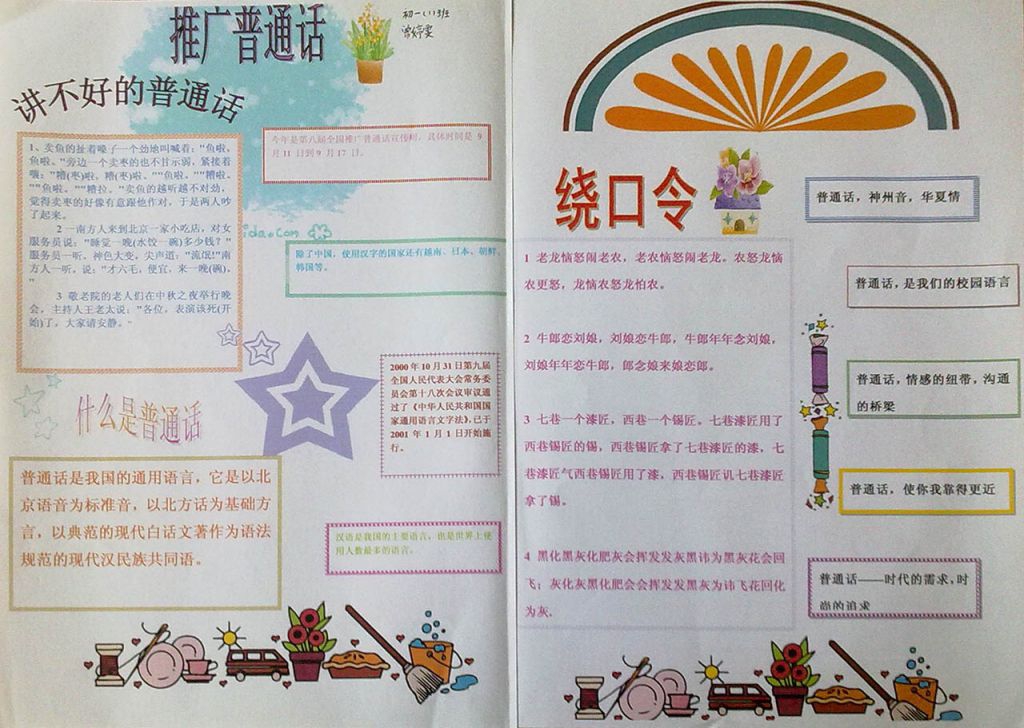 推广普通话
初一(1)班
讲不好的普通话
1、卖鱼的扯着嗓子一个劲地叫喊着："鱼啦、
鱼啦。"旁边一个卖枣的也不甘示弱，紧接着
嚷："糟(枣)啦、糟(枣)啦。""鱼啦。""糟啦。
""鱼啦。""糟拉。"卖鱼的越听越不对劲，
觉得卖枣的好像有意跟他作对，于是两人吵
了起来。
2 一南方人来到北京一家小吃店，对女
服务员说："睡觉一晚(水饺一碗)多少钱？"
服务员一听，神色大变，尖声道："流氓!"南
方人一听，说："才六毛，便宜，来一晚(碗)。
"
3 敬老院的老人们在中秋之夜举行晚
会，主持人王老太说："各位，表演该死(开
始)了，大家请安静。"
今年是第八届全国推广普通话宣传周，具体时间是 9
月 11 日到 9 月 17 日。
ida.com
除了中国，使用汉字的国家还有越南、日本、朝鲜、
韩国等。
2000 年 10 月 31 日第九届
全国人民代表大会常务委
员会第十八次会议审议通
过了《中华人民共和国国
家通用语言文字法》，已于
2001 年 1 月 1 日开始施
行。
什么是普通话
普通话是我国的通用语言，它是以北
京语音为标准音，以北方话为基础方
言，以典范的现代白话文著作为语法
规范的现代汉民族共同语。
汉语是我国的主要语言，也是世界上使
用人数最多的语言。
绕口令
1 老龙恼怒闹老农，老农恼怒闹老龙。农怒龙恼
农更怒，龙恼农怒龙怕农。
2 牛郎恋刘娘，刘娘恋牛郎，牛郎年年念刘娘，
刘娘年年恋牛郎，郎念娘来娘恋郎。
3 七巷一个漆匠，西巷一个锡匠。七巷漆匠用了
西巷锡匠的锡，西巷锡匠拿了七巷漆匠的漆，七
巷漆匠气西巷锡匠用了漆，西巷锡匠讥七巷漆匠
拿了锡。
4 黑化黑灰化肥灰会挥发发灰黑讳为黑灰花会回
飞；灰化灰黑化肥会会挥发发黑灰为讳飞花回化
为灰.
普通话，神州音，华夏情
普通话，是我们的校园语言
普通话，情感的纽带，沟通
的桥梁
普通话，使你我靠得更近
普通话——时代的需求，时
尚的追求